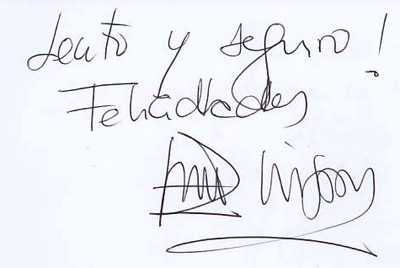 Lento y seguro!
Felicidades